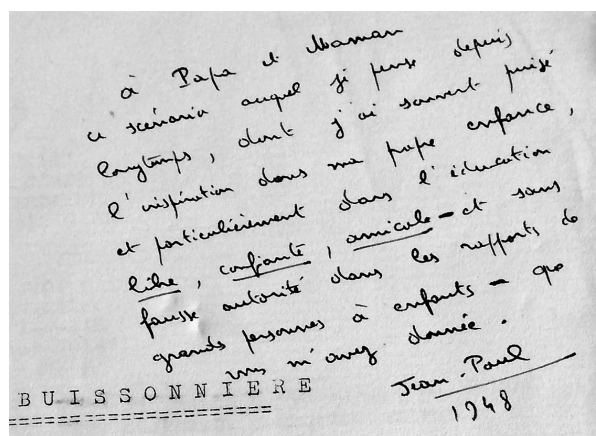 à Papa et Maman
ce scénario auquel je pense depuis
longtemps, dont j'ai souvent puisé
l'inspiration dans ma propre enfance,
et particulièrement dans l'éducation
libre, confiante, amicale - et sans
fausse autorité dans les rapports de
grandes personnes à enfants - que
vous m'avez donnée.
Jean-Paul
1948
BUISSONNIERE